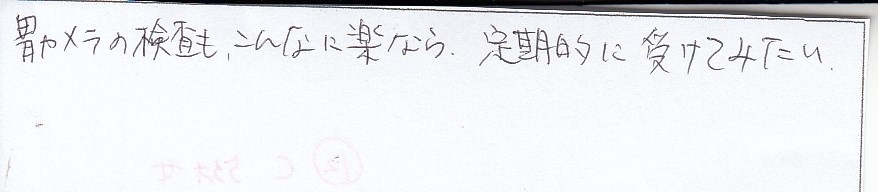 胃カメラの検査も、こんなに楽なら、定期的に受けてみたい.